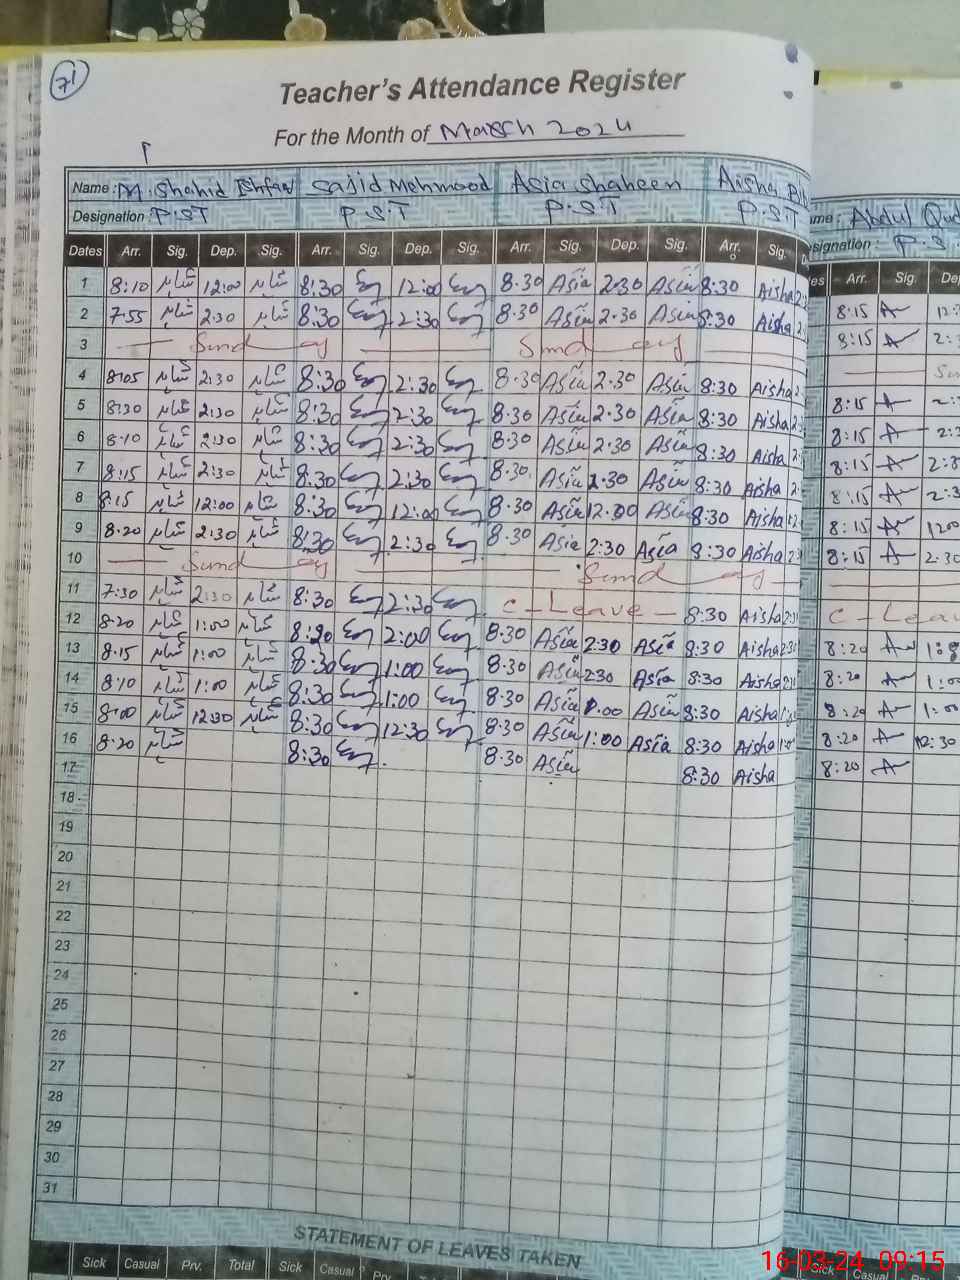 71
Teacher's Attendance Register
For the Month of March 2024
Name: M. Shahid Ishfaq Sajid Mehmood Asia Shaheen Aisha Bib
Designation: P.S.T P.S.T P.S.T P.S.T
Dates Arr. Sig. Dep. Sig. Arr. Sig. Dep. Sig. Arr. Sig. Dep. Sig. Arr. Sig. D
1 8:10 شاہد 12:00 شاہد 8:30 12:00 8.30 Asia 2.30 Asia 8:30 Aisha
2 7:55 شاہد 2:30 شاہد 8:30 2:30 8.30 Asia 2.30 Asia 8:30 Aisha
3 Sunday Sunday
4 8:05 شاہد 2:30 شاہد 8:30 2:30 8.30 Asia 2.30 Asia 8:30 Aisha
5 8:30 شاہد 2:30 شاہد 8:30 2:30 8.30 Asia 2.30 Asia 8:30 Aisha
6 8:10 شاہد 2:30 شاہد 8:30 2:30 8.30 Asia 2.30 Asia 8:30 Aisha
7 8:15 شاہد 2:30 شاہد 8:30 2:30 8.30 Asia 2.30 Asia 8:30 Aisha
8 8:15 شاہد 12:00 شاہد 8:30 12:00 8.30 Asia 12.00 Asia 8:30 Aisha
9 8:20 شاہد 2:30 شاہد 8:30 2:30 8.30 Asia 2:30 Asia 8:30 Aisha
10 Sunday Sunday
11 7:30 شاہد 2:30 شاہد 8:30 2:30 C-Leave 8:30 Aisha 2:30
12 8:20 شاہد 1:00 شاہد 8:20 2:00 8.30 Asia 2:30 Asia 8:30 Aisha 2:30
13 8:15 شاہد 1:00 شاہد 8:30 1:00 8.30 Asia 2:30 Asia 8:30 Aisha
14 8:10 شاہد 1:00 شاہد 8:30 1:00 8.30 Asia 1.00 Asia 8:30 Aisha
15 8:00 شاہد 12:30 شاہد 8:30 12:30 8.30 Asia 1:00 Asia 8:30 Aisha
16 8:20 شاہد 8:30 8.30 Asia 8:30 Aisha
17
18
19
20
21
22
23
24
25
26
27
28
29
30
31
STATEMENT OF LEAVES TAKEN
Sick Casual Prv. Total Sick Casual Prv.
ame: Abdul Qud
signation: P.S
es Arr. Sig. Dep
8:15
8:15
8:15
8:15
8:15
8:15
8:15 1200
8:15 2:30
C-Leav
8:20
8:20 1:00
8:20 1:00
8:20 12:30
8:20
Sick Casual
16-03-24 09:15